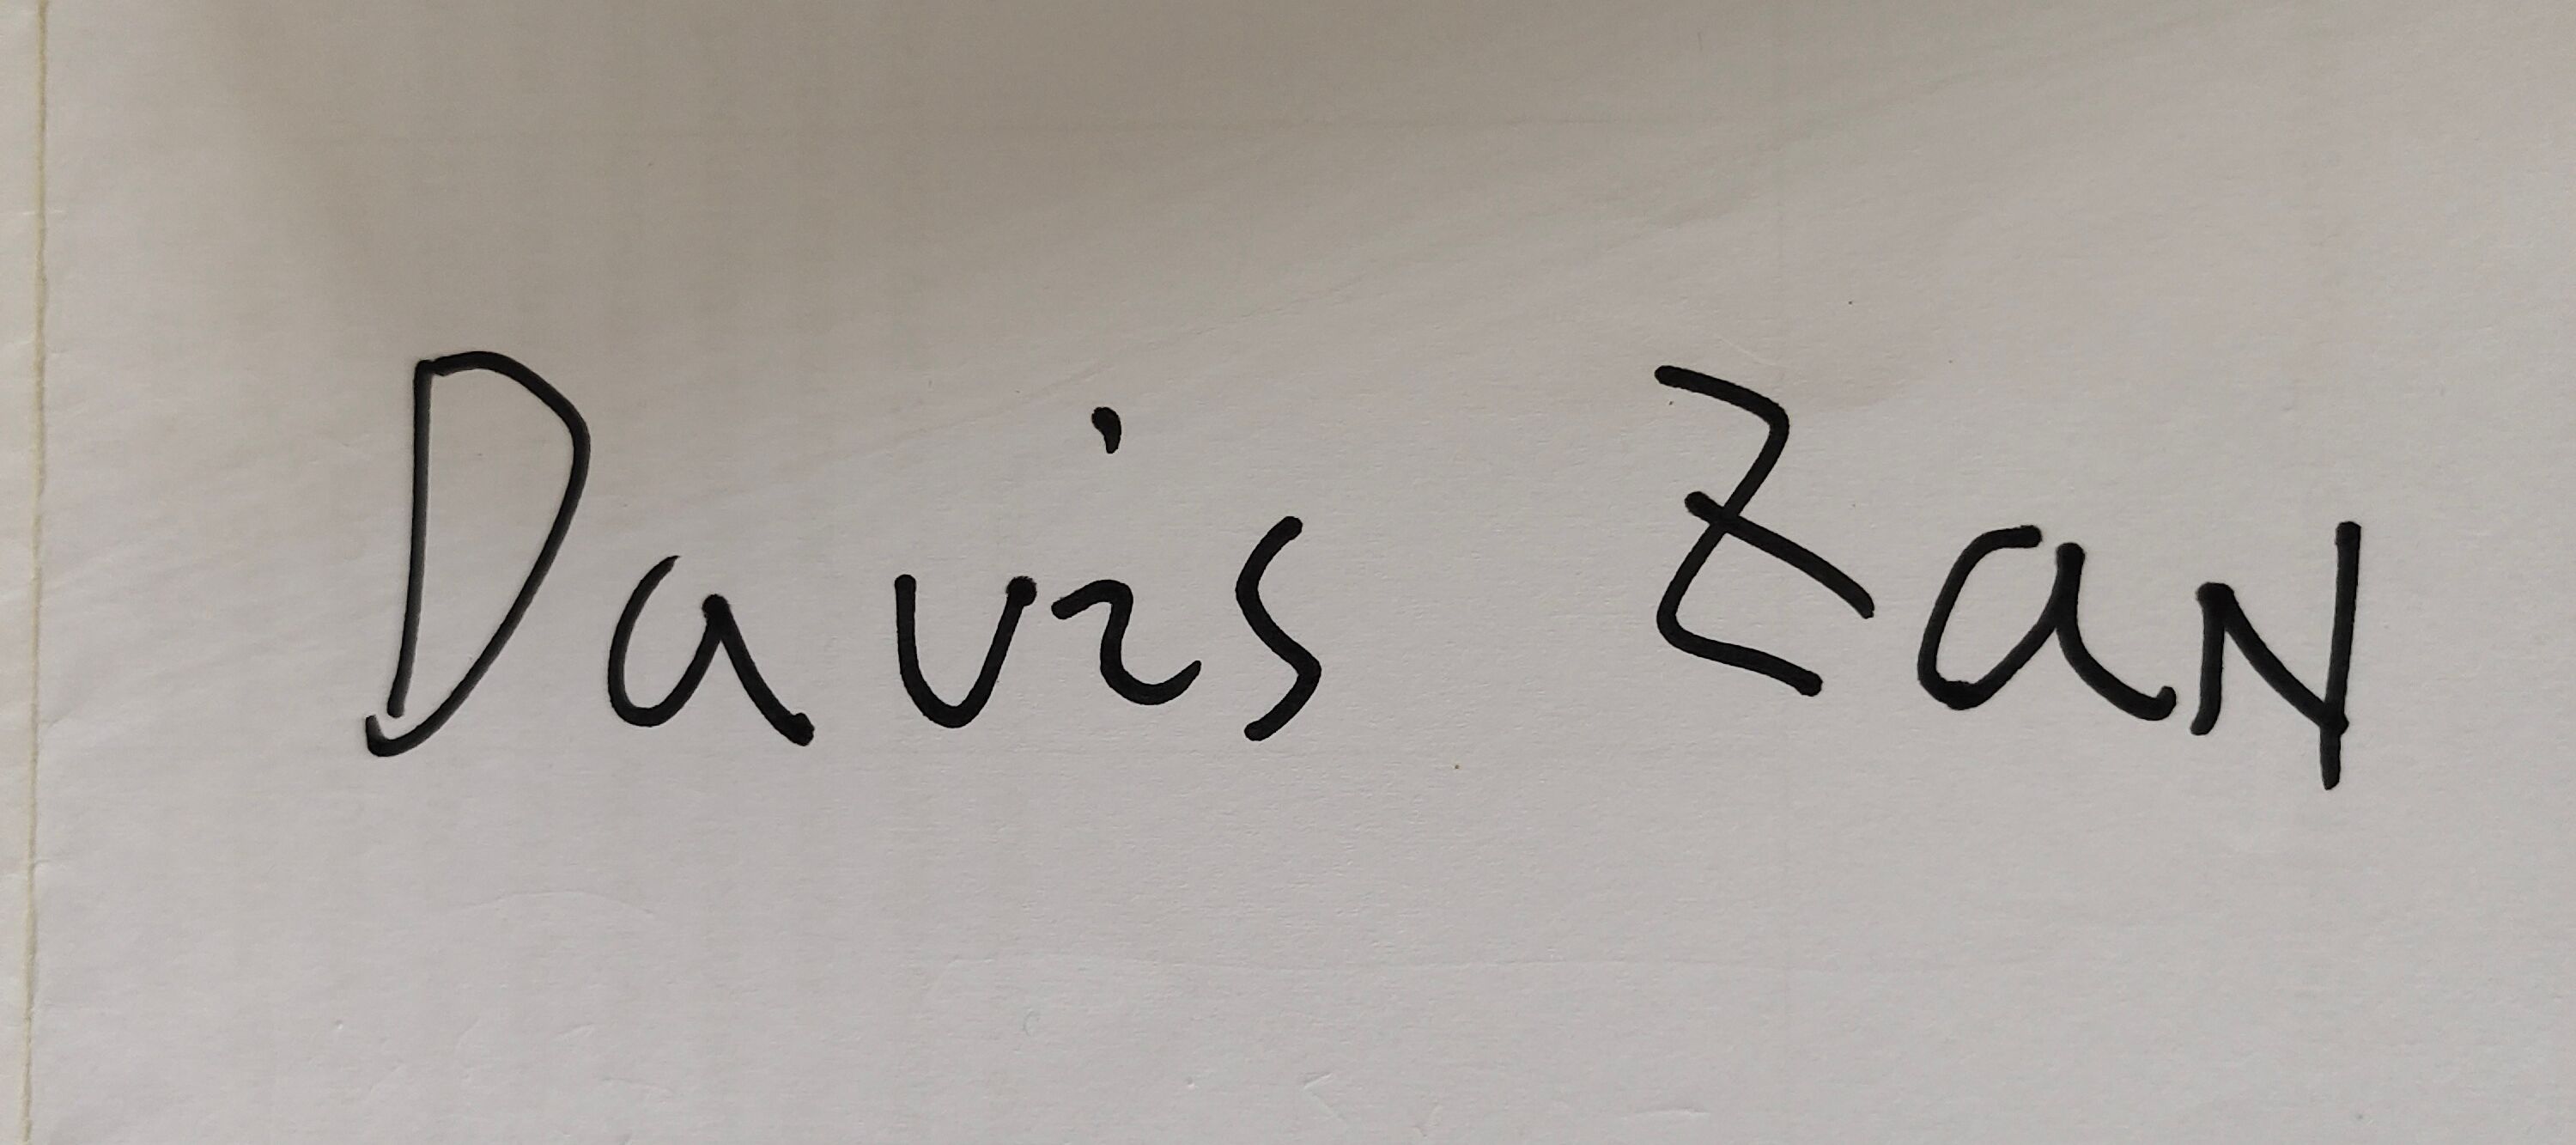 Davis Zan